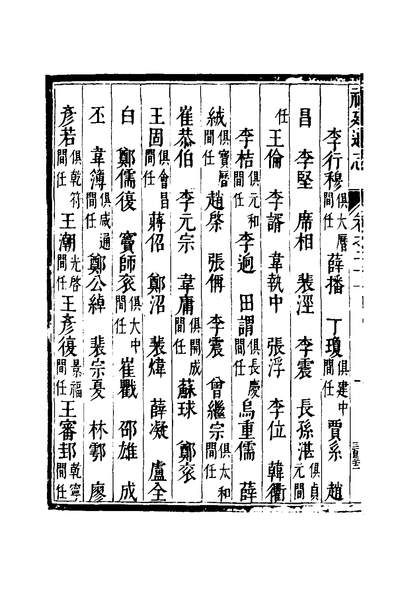 福建通志 卷之二十
李行穆俱大曆間任 薛播 丁瓊俱建中間任 賈系 趙
昌 李堅 席相 裴涇 李震 長孫湛俱貞元間
任 王倫 李諝 韋執中 張浮 李位 韓衢
李桔俱元和間任 李迥 田謂俱長慶間任 烏重儒 薛
絨俱寶曆間任 趙棨 張侢 李震 曾繼宗俱太和間任
崔恭伯 李元宗 韋庸俱開成間任 蘇球 鄭衮
王固俱會昌間任 蔣佋 鄭沼 裴煒 薛凝 盧仝
白 鄭儒復 竇師衮俱大中間任 崔戳 邵雄 成
丕 韋簿俱咸通間任 鄭公綽 裴宗憂 林鄠 廖
彥若俱乾符間任 王潮光啓間任 王彥復景福間任 王審邽乾寧間任